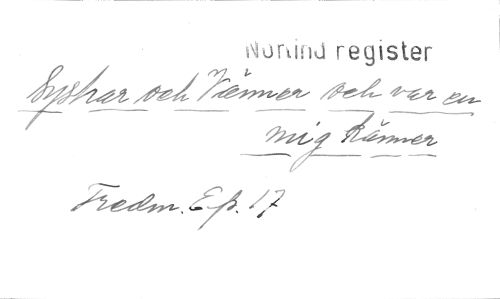 Norlind register
Syskar och Vänner och var en
mig känner
Fredm. Ep. 17